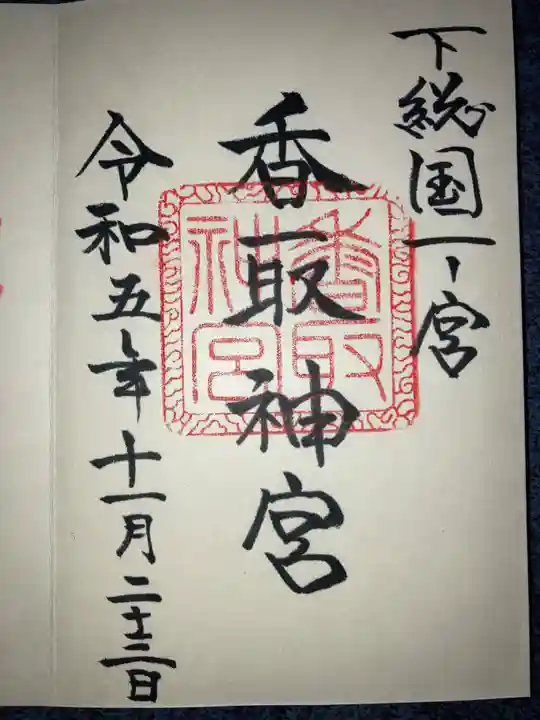 下総国一ノ宮
香取神宮
香取
神宮
令和五年十一月二十二日